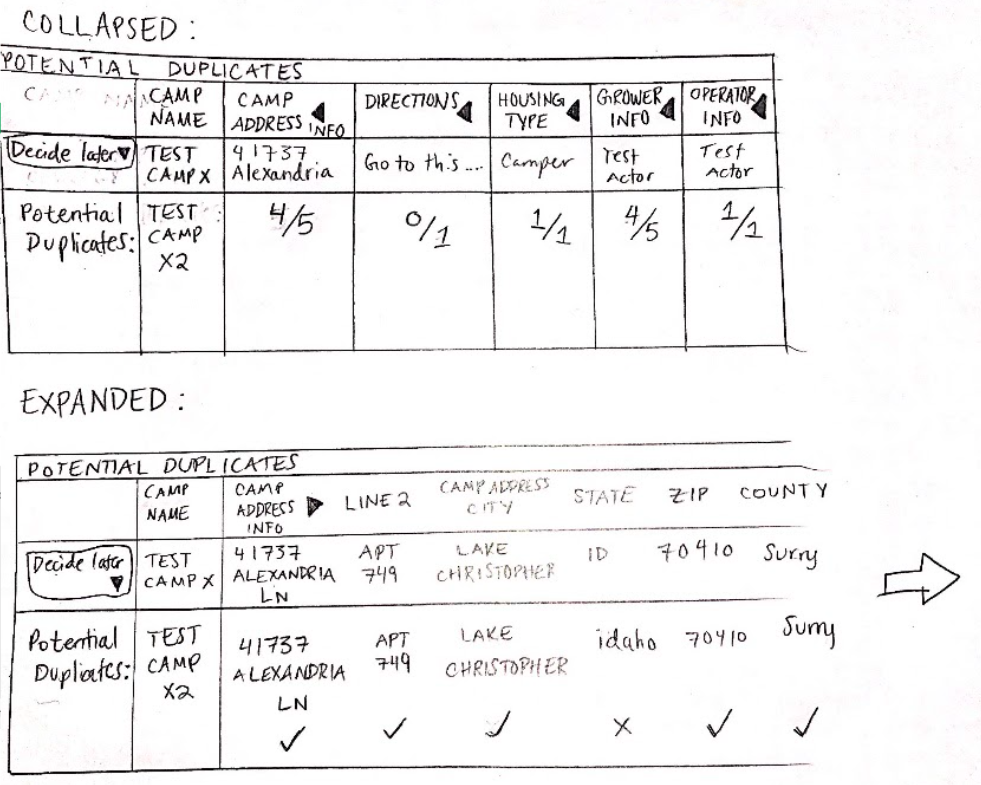 COLLAPSED:
POTENTIAL DUPLICATES
CAMP NAME
CAMP ADDRESS INFO
DIRECTIONS
HOUSING TYPE
GROWER INFO
OPERATOR INFO
Decide later
TEST CAMP X
41737 Alexandria
Go to this ....
Camper
Test Actor
Test Actor
Potential Duplicates:
TEST CAMP X2
4/5
0/1
1/1
4/5
1/1
EXPANDED:
POTENTIAL DUPLICATES
CAMP NAME
CAMP ADDRESS INFO
LINE 2
CAMP ADDRESS CITY
STATE
ZIP
COUNTY
Decide later
TEST CAMP X
41737 ALEXANDRIA LN
APT 749
LAKE CHRISTOPHER
ID
70410
Surry
Potential Duplicates:
TEST CAMP X2
41737 ALEXANDRIA LN
APT 749
LAKE CHRISTOPHER
idaho
70410
Surry
✓ ✓ ✓ X ✓ ✓